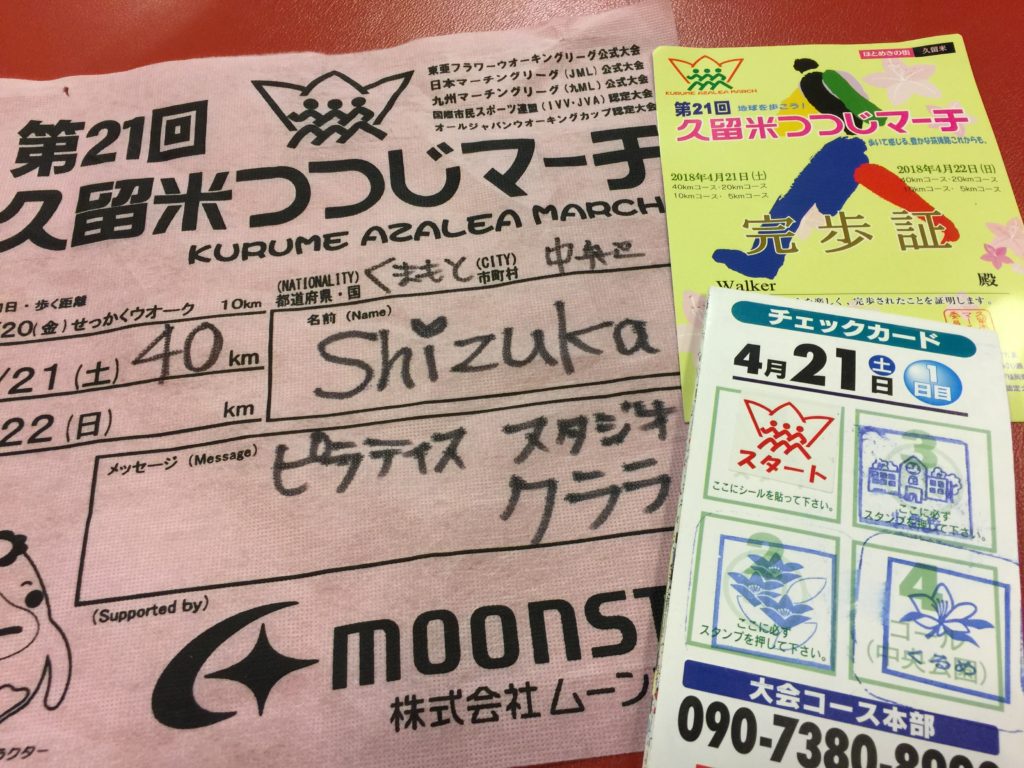 東亜フラワーウオーキングリーグ公式大会
日本マーチングリーグ(JML)公式大会
九州マーチングリーグ(九ML)公式大会
国際市民スポーツ連盟(IVV・JVA)認定大会
オールジャパンウオーキングカップ認定大会
第21回
久留米つつじマーチ
KURUME AZALEA MARCH
(NATIONALITY)
都道府県・国
くまもと
(CITY)
市町村
中央区
日・歩く距離
20(金)せっかくウオーク 10km
/21(土) 40 km
22(日) km
名前 (Name)
Shizuka
メッセージ (Message)
ピラティス スタジオ
クララ
(Supported by)
MOONST
株式会社 ムーン
ラクター
ほとめきの街 久留米
KURUME AZALEA MARCH
第21回 地球を歩こう!
久留米つつじマーチ
歩いて感じる、豊かな筑後路これからも。
2018年4月21日(土)
40kmコース・20kmコース
10kmコース・ 5kmコース
2018年4月22日(日)
40kmコース・20kmコース
10kmコース・ 5kmコース
完歩証
Walker 殿
楽しく、完歩されたことを証明します。
チェックカード
4月21日 土 1日目
スタート
ここにシールを貼って下さい。
3
ここに必ず
スタンプを押して下さい。
2
ここに必ず
スタンプを押して下さい。
4
ゴール
(中央公園)
くるめ
大会コース本部
090-7380-8